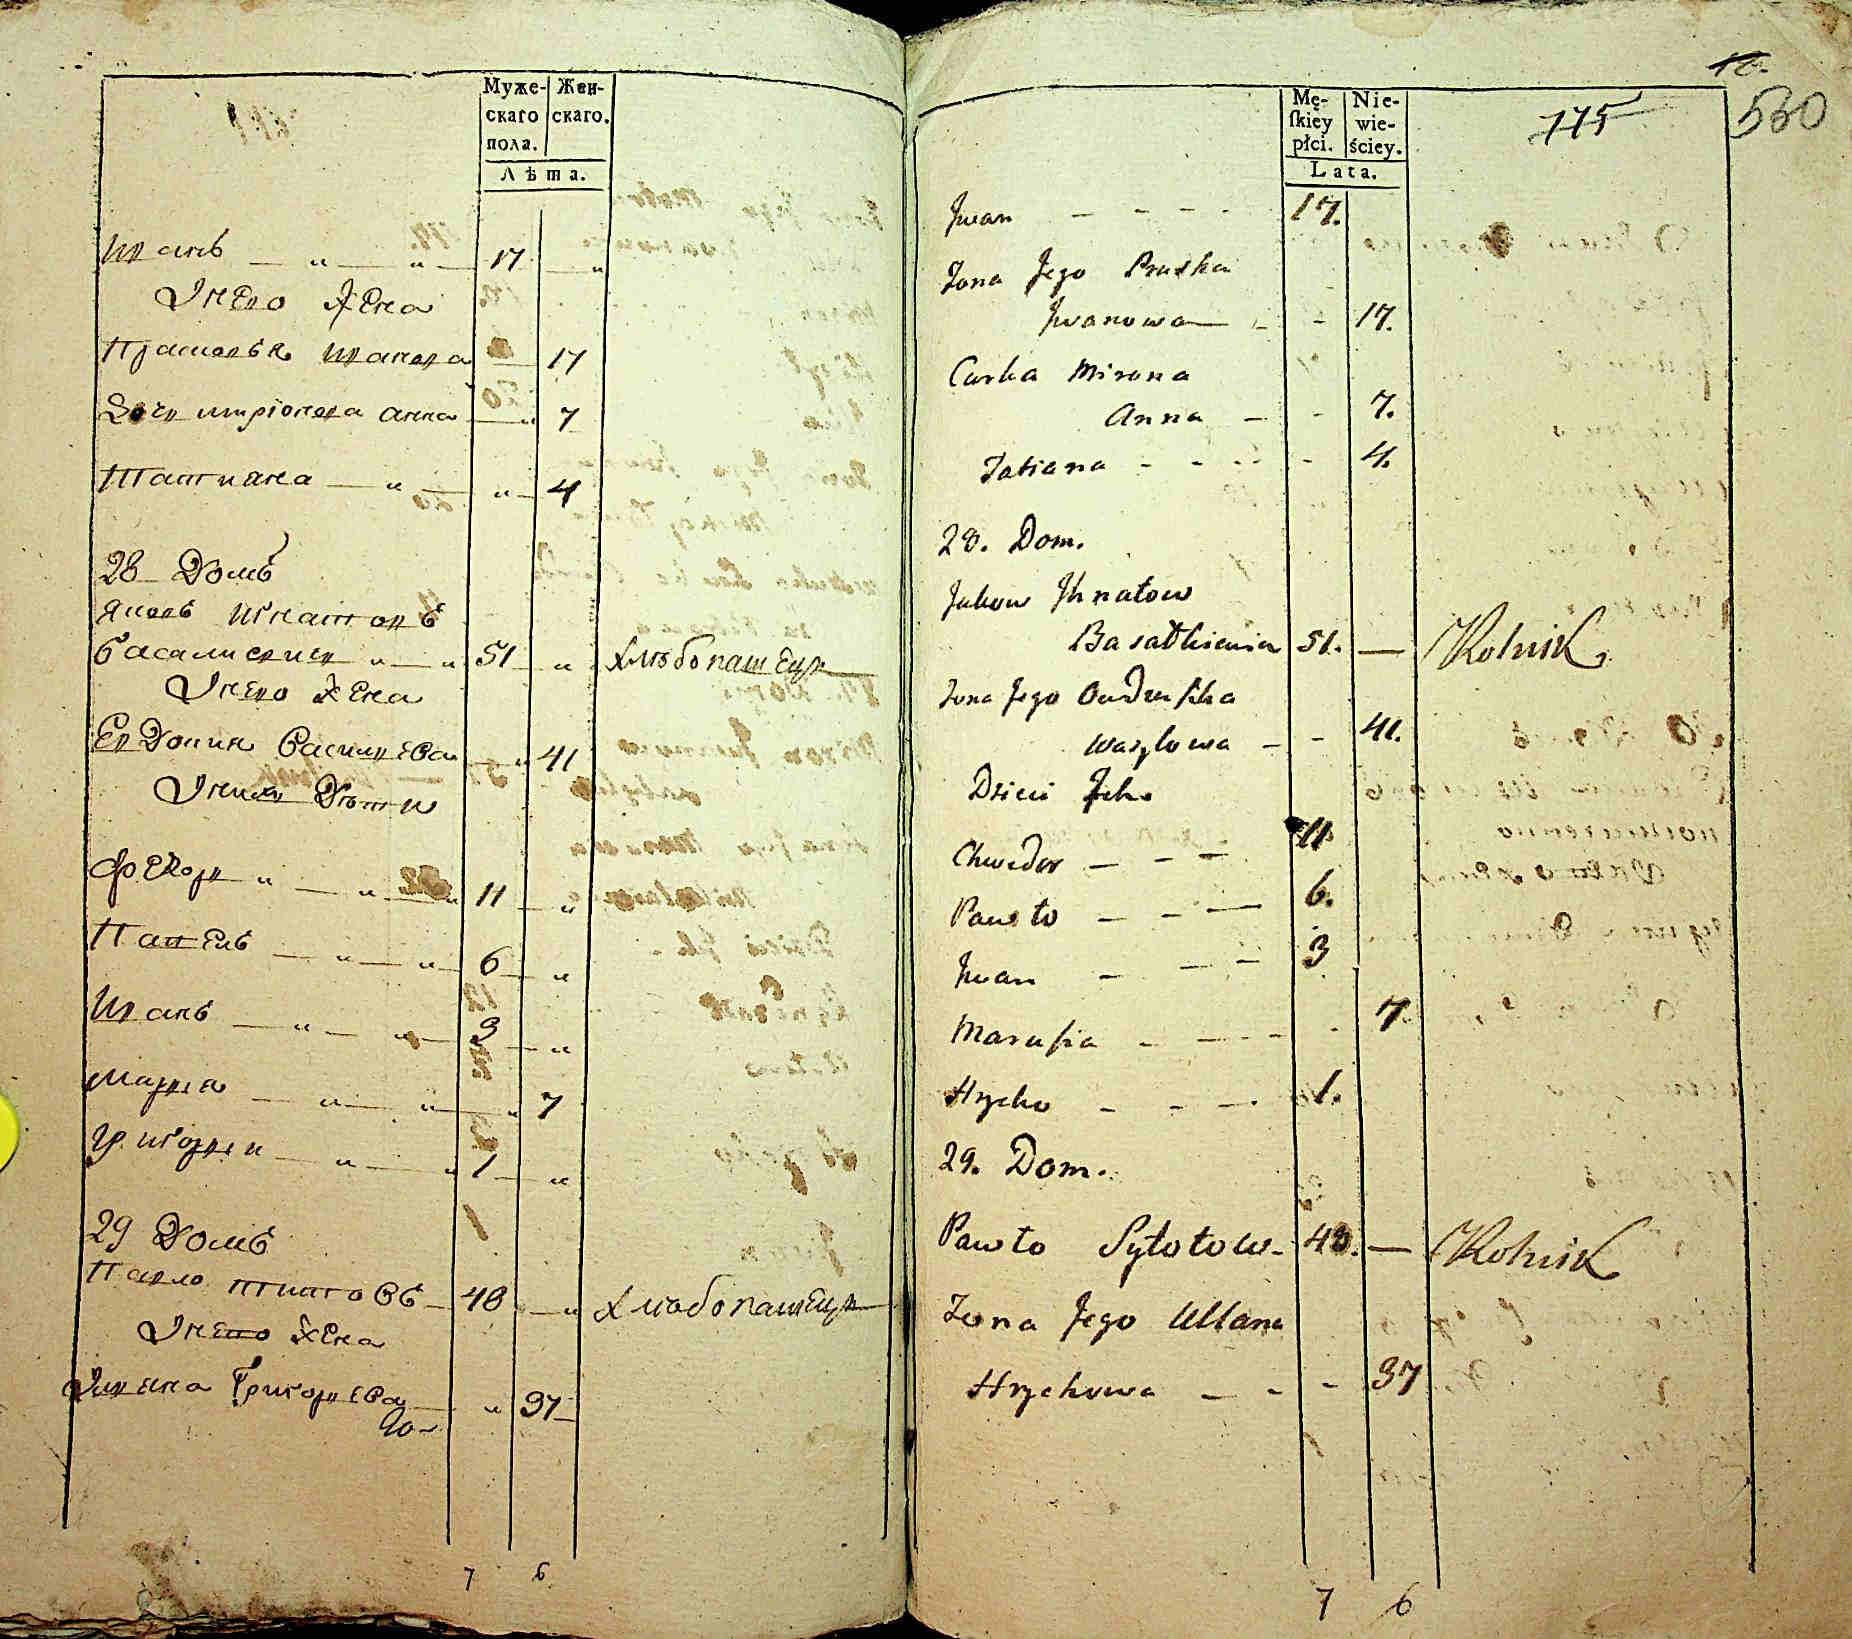 Муже-
скаго
пола.
Жен-
скаго.
Лѣта.
Иванъ — „ — „ — 17 — „
Унево Жена
Прасковья Иванова — 17
Дочь миронова анна — „ 7
Татиана — „ — „ — 4
28 Домъ
Яковъ Игнатовъ
„ — „ 51 — „ хлѣбопашецъ
Унево Жена
Евдокия Василева — „ 41
Унихъ Дѣти
Федоръ „ — „ — „ 11 — „
Павелъ — „ — „ — 6 — „
Иванъ — „ — „ — 3 — „
Мария — „ — „ — „ 7
Григорей — „ — „ 1 — „
29 Домъ
Павло — 48 — „ хлѣбопашецъ
Унево Жена
Уляна Григорева — „ 37
7 6
12.
530
175
Mę-
ſkiey
płci.
Nie-
wie-
ściey.
Lata.
Jwan - - - - 17.
Żona Jego Praska
Jwanowa - - 17.
Curka Mirona
Anna - - 7.
Tatiana - - - - 4.
28. Dom.
Jakow Jhnatow
51. — Rolnik
Żona Jego Oudruſzka
Wasylowa - - 41.
Dzieci Jch
Chwedor - - - 11.
Pawło - - — 6.
Jwan - - - 3
Maruſia - - - - 7
Hrycko - - - 1.
29. Dom.
Pawło Syłotow - 48. — Rolnik
Żona Jego Ullana
Hrychowa - - - 37
7 6